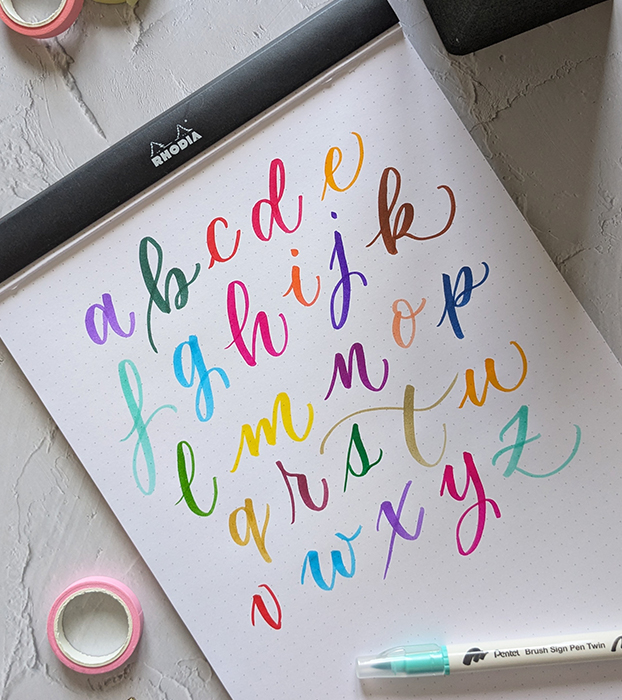 RHODIA
a b c d e
f g h i j k
l m n o p
q r s t u
v w x y z
Pentel Brush Sign Pen Twin